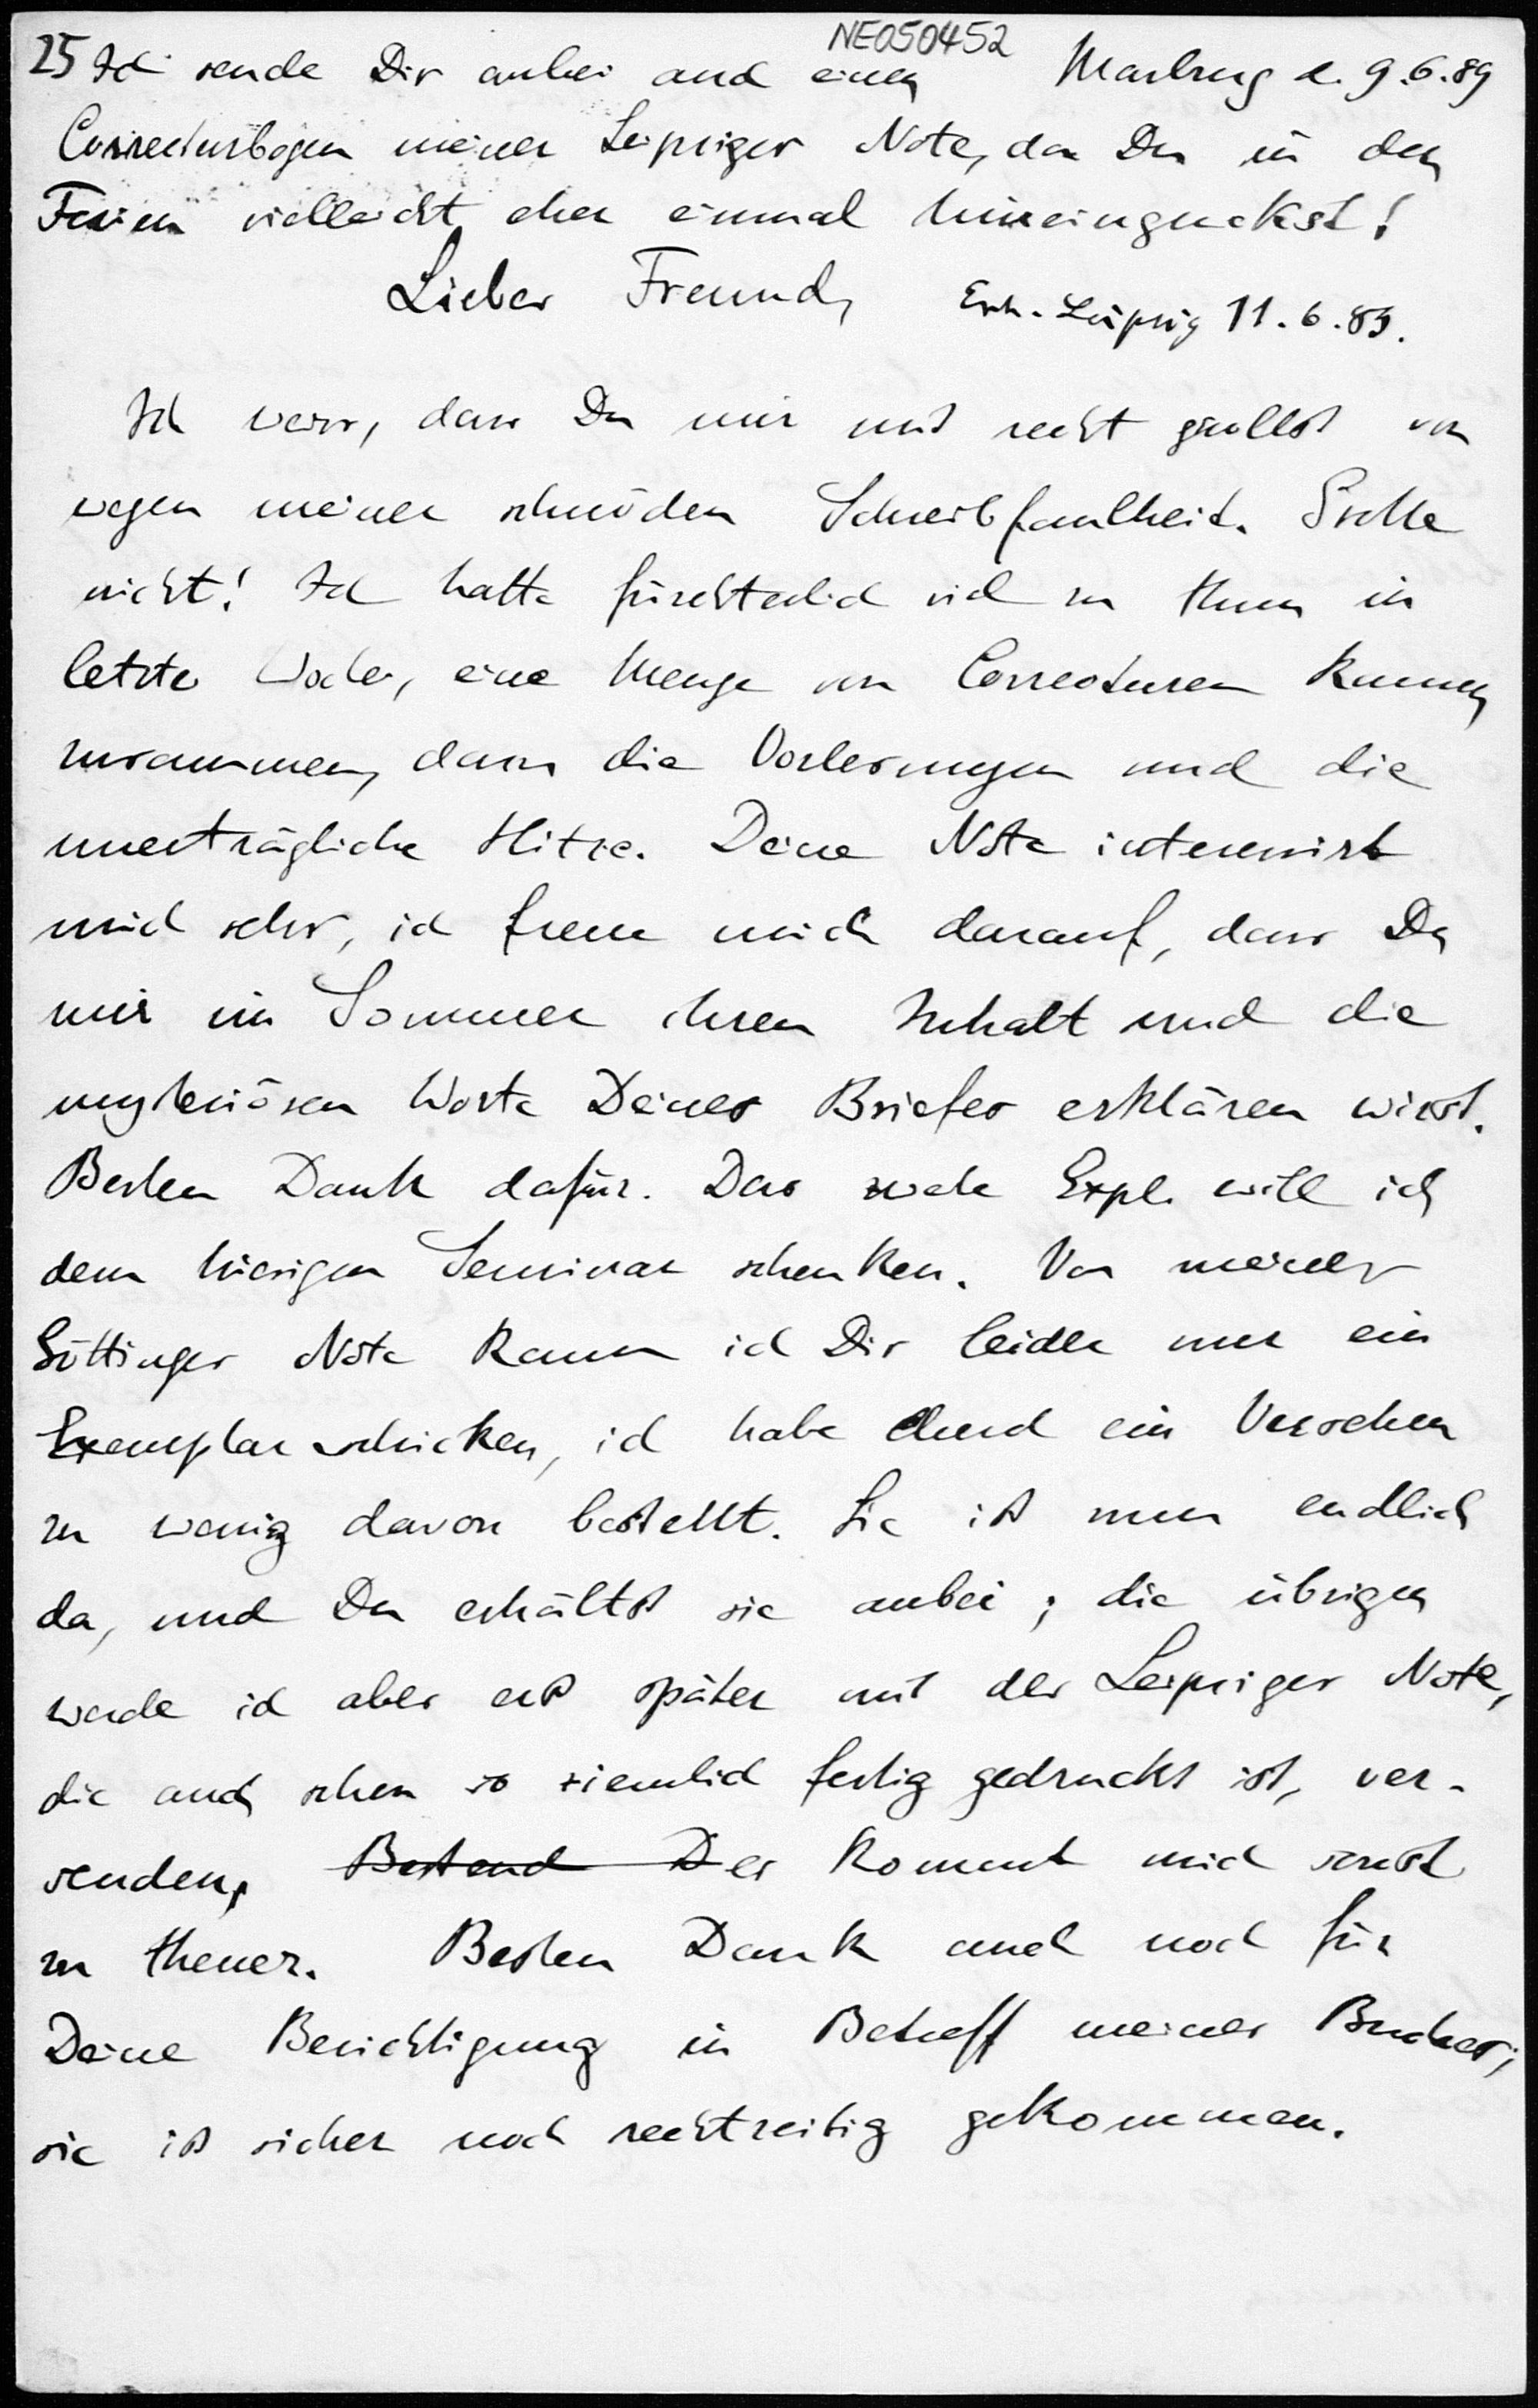 NE050452
25 Ich sende Dir anbei auch einen Marburg d. 9.6.89
Correcturbogen meiner Leipziger Note, da Du in den
Ferien vielleicht eher einmal hineinguckst!
Lieber Freund, Erh. Leipzig 11.6.89.
Ich weiss, dass Du mir mit recht grollst von
wegen meiner schnöden Schreibfaulheit. Grolle
nicht! Ich hatte fürchterlich viel zu thun in
letzter Woche, eine Menge von Correcturen kamen
zusammen, dazu die Vorlesungen und die
unerträgliche Hitze. Deine Note interessirt
mich sehr, ich freue mich darauf, dass Du
mir im Sommer ihren Inhalt und die
mysteriösen Worte Deines Briefes erklären wirst.
Besten Dank dafür. Das zweite Expl. will ich
dem hiesigen Seminar schenken. Von meiner
Göttinger Note kann ich Dir leider nur ein
Exemplar schicken, ich habe durch ein Versehen
zu wenig davon bestellt. Sie ist nun endlich
da, und Du erhältst sie anbei; die übrigen
werde ich aber erst später mit der Leipziger Note,
die auch schon so ziemlich fertig gedruckt ist, ver-
senden, Bestend D es kommt mich sonst
zu theuer. Besten Dank auch noch für
Deine Berichtigung in Betreff meines Buches;
sie ist sicher noch rechtzeitig gekommen.